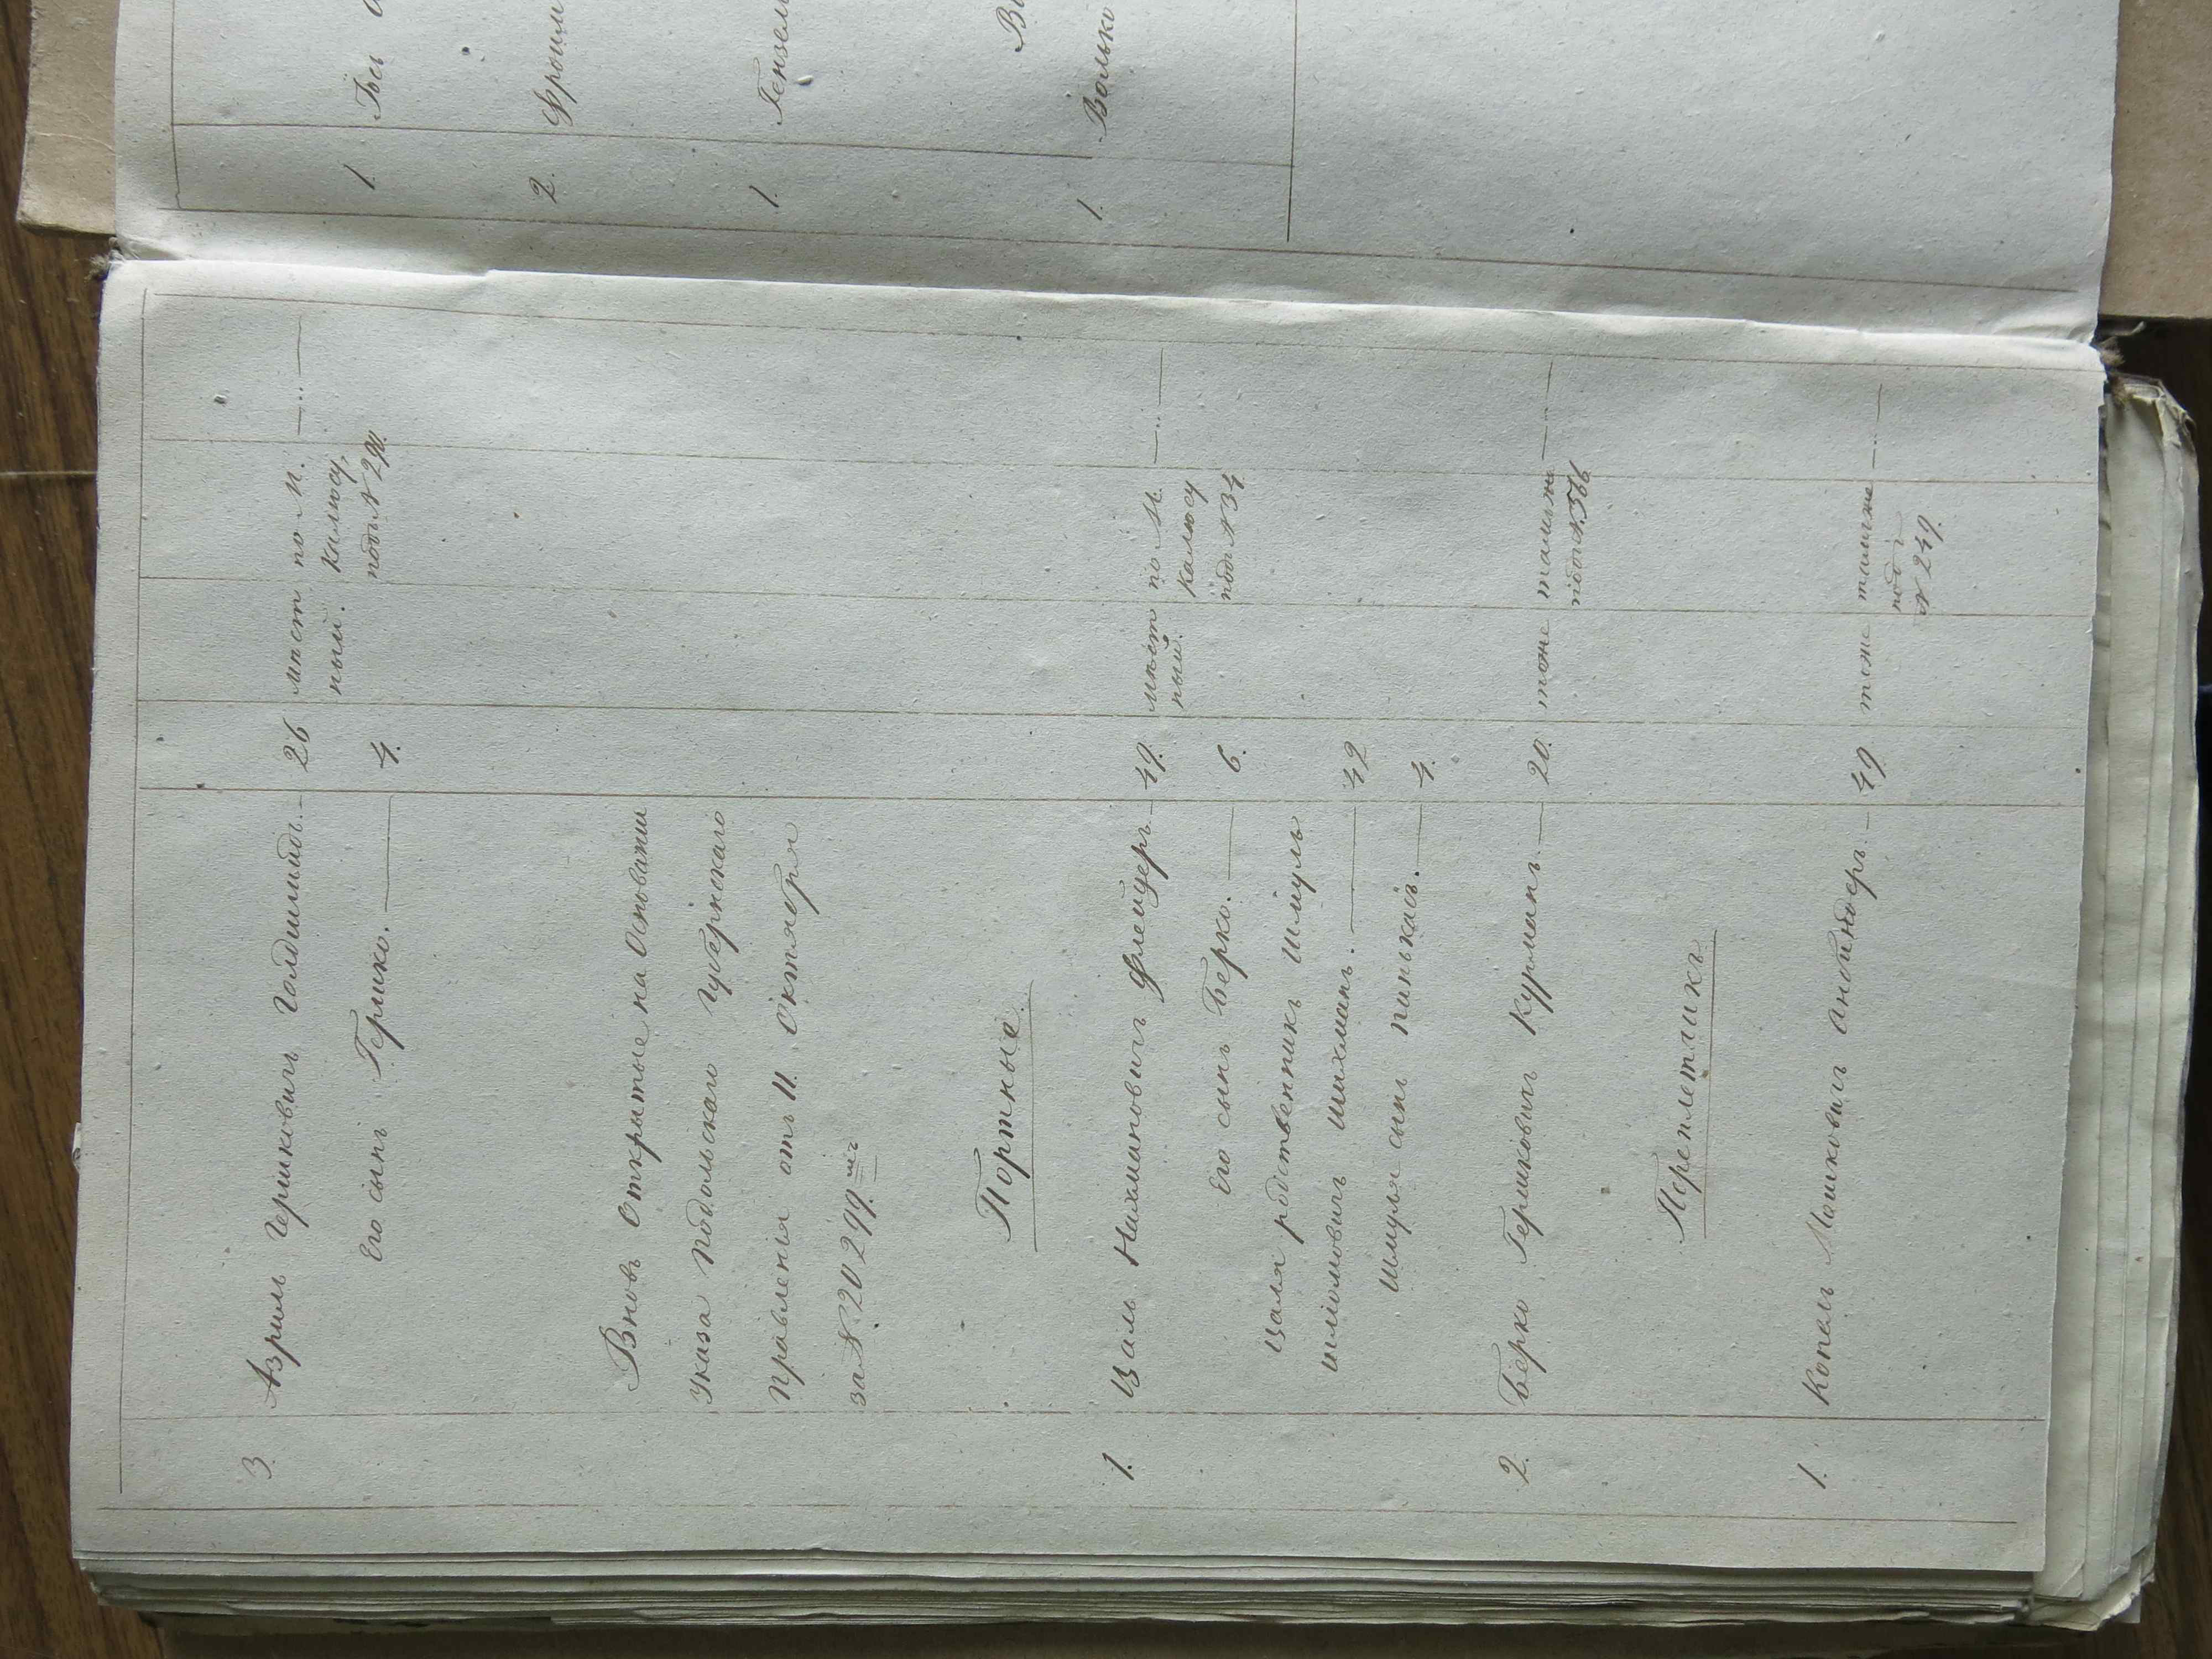 3. Азриль Гершковичъ Голдшмидъ. — 26 мѣст по М. — „ —
ный. Калюсу,
Его сынъ Гершко. — 4. подъ N 290.
Вновь Открытые на Основаніи
Указа Подольскаго Губернскаго
Правленія отъ 11. Октября
за N. 20299.мъ
Портные.
1. Цаль Нахмановичъ Флейдеръ — 49. мѣст по М. — „ —
ный. Калюсу
Его сынъ Берко. — 6. подъ N 34
Цаля родственникъ Шмуль
Шліомовичъ Шихманъ. — 42
Шмуля сынъ Пинькасъ. — 4.
2. Берко Гершковичъ Курманъ. — 20. тоже тамъже — „ —
подъ N. 366
Переплетчикъ.
1. Копель Мошковичъ — 49 тоже тамъже — „ —
подъ
N 249.
1. Бер
2. Фроим
1. Гензел
1. Волько